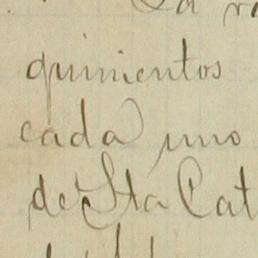 quinientos
cada uno
de Sta Cat